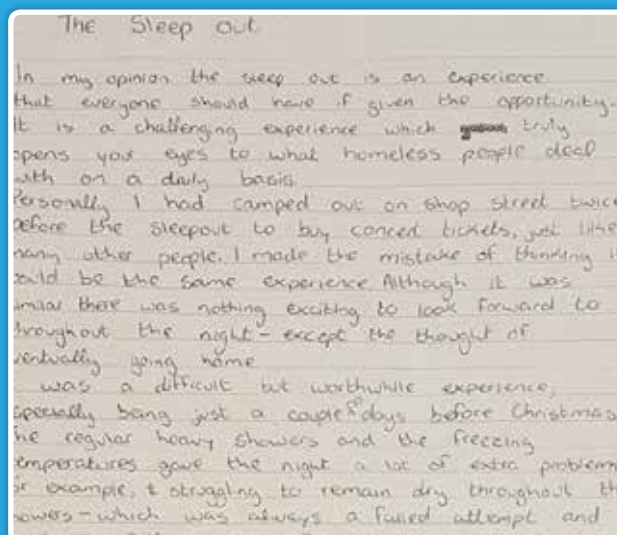 The Sleep out
In my opinion the sleep out is an experience
that everyone should have if given the opportunity.
It is a challenging experience which truly
opens your eyes to what homeless people deal
with on a daily basis.
Personally I had camped out on shop street twice
before the sleepout to buy concert tickets, just like
many other people. I made the mistake of thinking it
would be the same experience. Although it was
similar there was nothing exciting to look forward to
throughout the night - except the thought of
eventually going home
was a difficult but worthwhile experience,
especially being just a couple of days before Christmas
The regular heavy showers and the freezing
temperatures gave the night a lot of extra problems
for example, struggling to remain dry throughout the
showers - which was always a failed attempt and